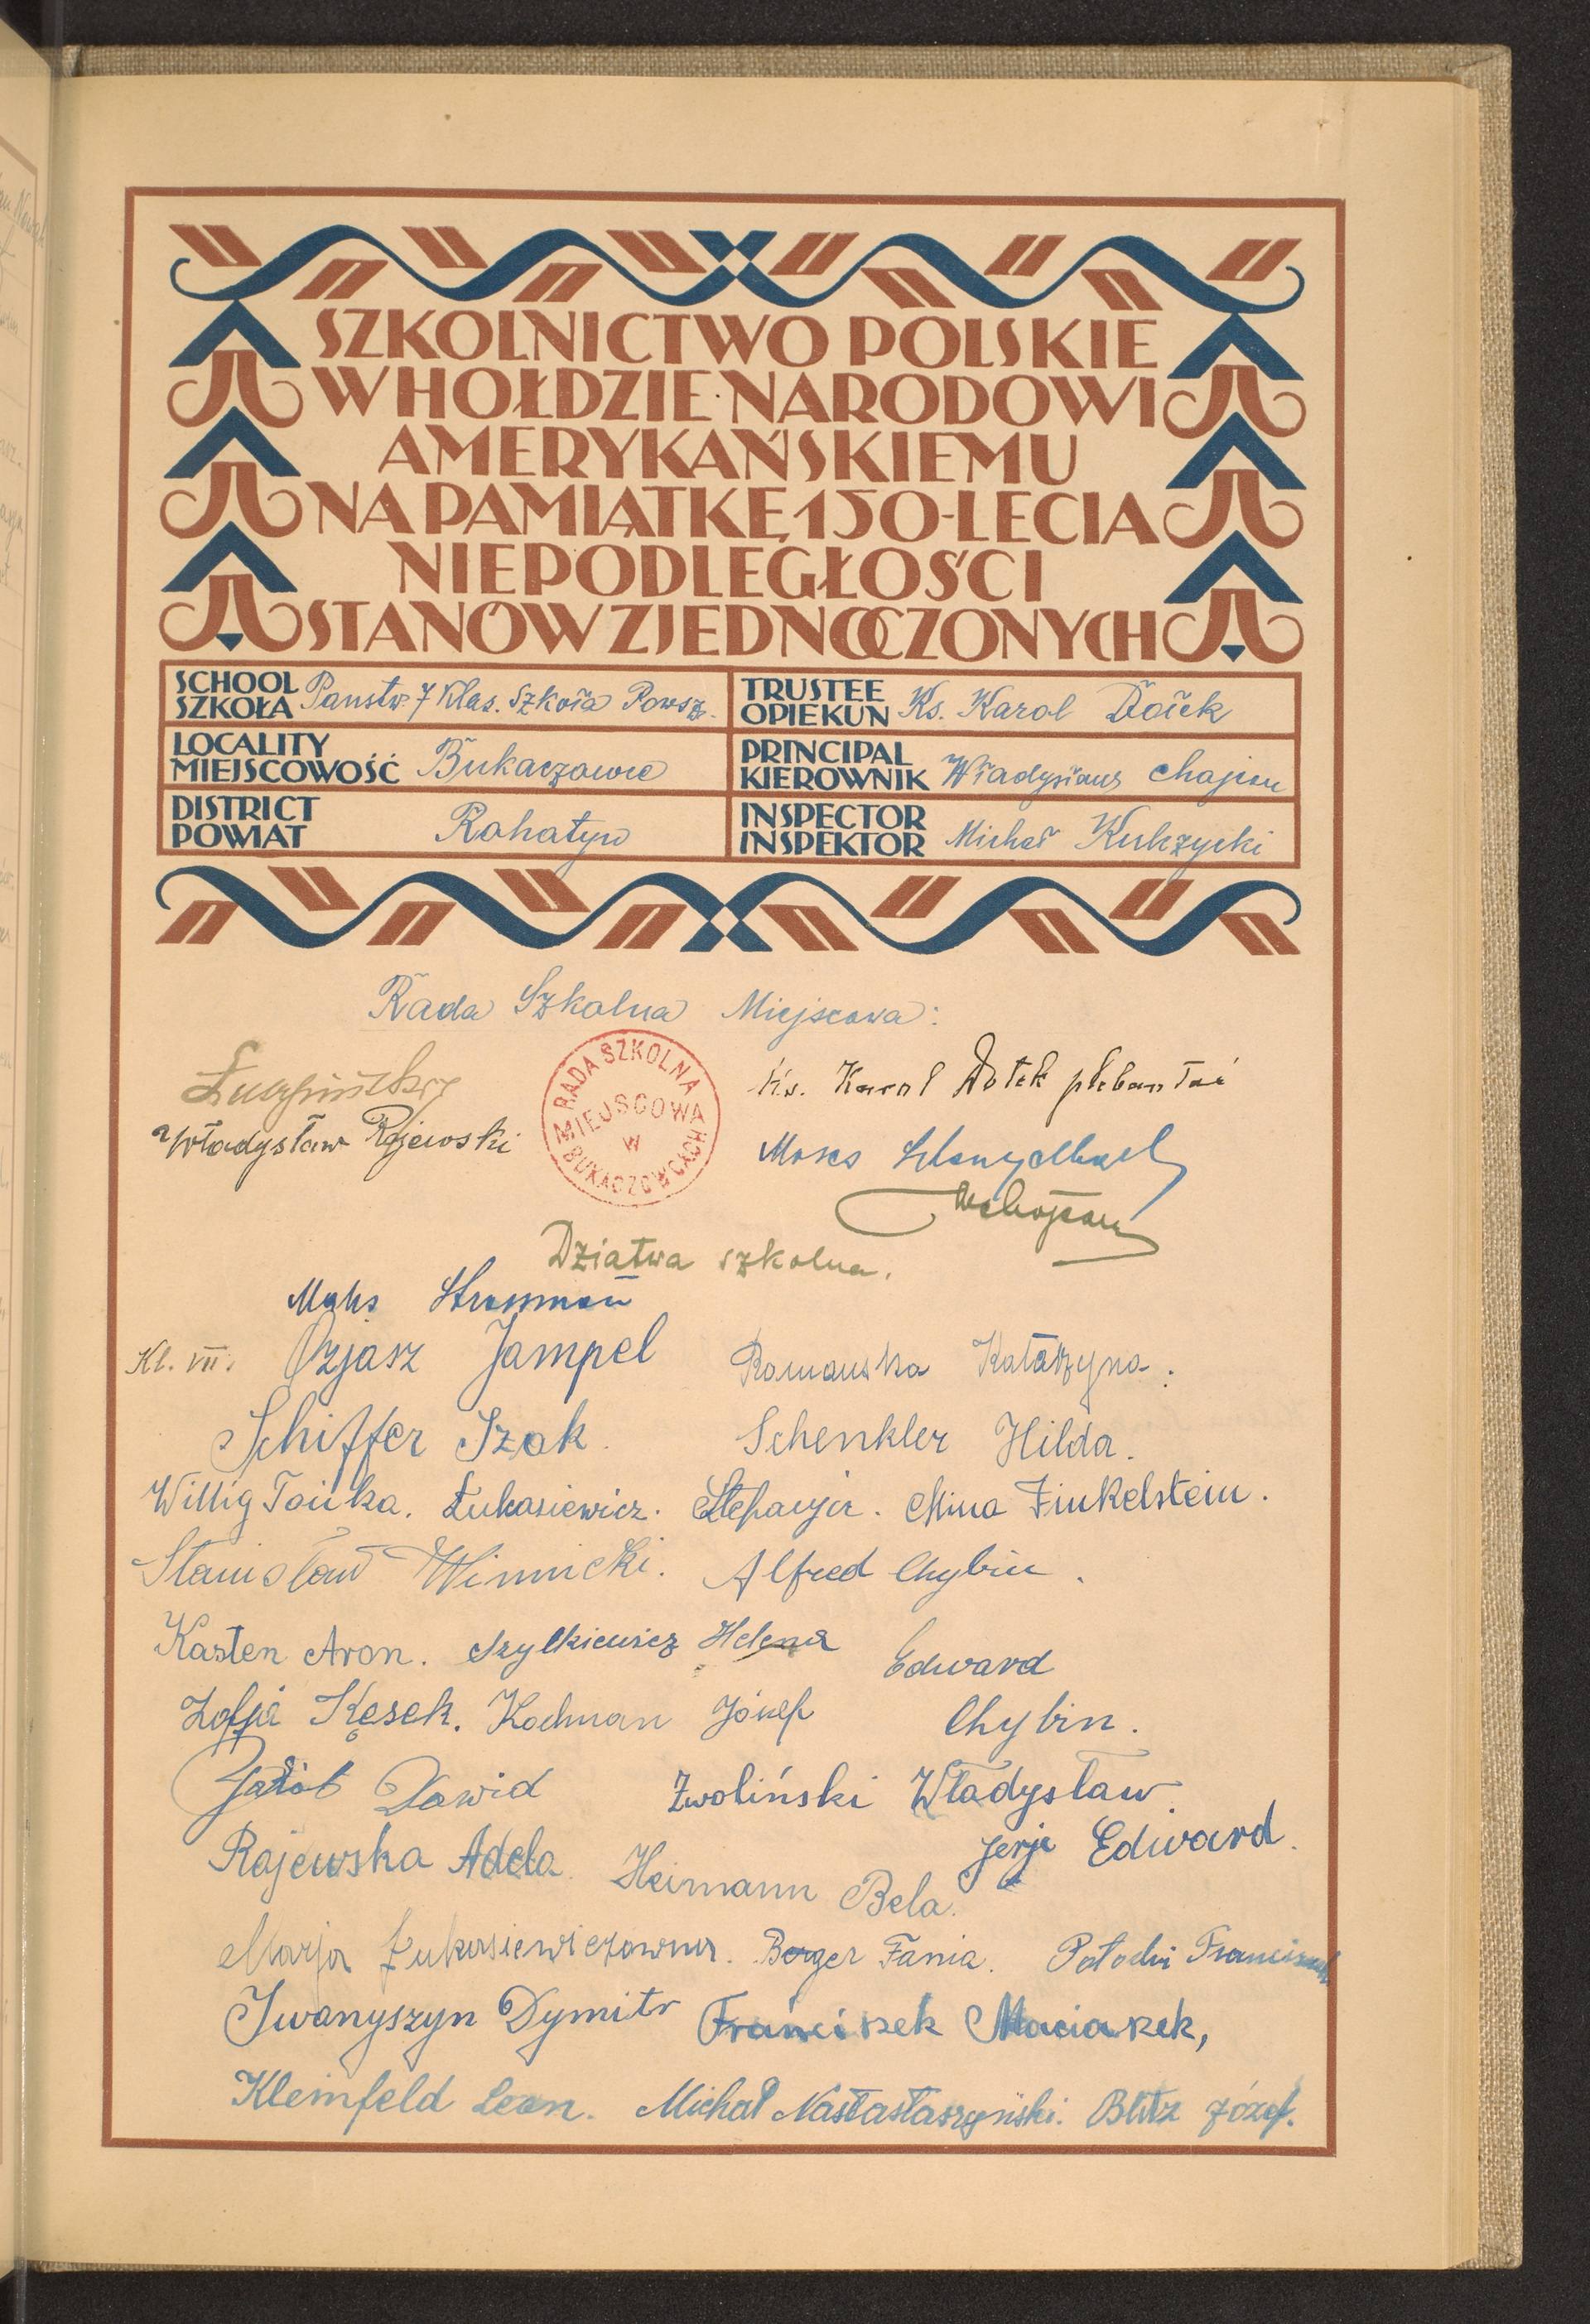 SZKOLNICTWO POLSKIE
W HOŁDZIE NARODOWI
AMERYKAŃSKIEMU
NA PAMIĄTKĘ 150-LECIA
NIEPODLEGŁOŚCI
STANÓW ZJEDNOCZONYCH
SCHOOL
SZKOŁA Państw. 7 klas. Szkoła Powsz.
TRUSTEE
OPIEKUN Ks. Karol Dołek
LOCALITY
MIEJSCOWOŚĆ Bukaczowce
PRINCIPAL
KIEROWNIK Władysław Chajcan
DISTRICT
POWIAT Rohatyn
INSPECTOR
INSPEKTOR Michał Kulczycki
Rada Szkolna Miejscowa:
RADA SZKOLNA
MIEJSCOWA
W
BUKACZOWCACH
Ks. Karol Dołek pleban łać
Władysław Rajewski
Moses
Dziatwa szkolna.
Maks Strassman
Kl. VII. Ozjasz Jampel Romanska Katarzyna.
Schiffer Izak. Schenkler Hilda.
Willig Tońka. Łukasiewicz. Stefanja. Mina Finkelstein.
Stanisław Winnicki. Alfred Chybin.
Kasten Aron. Szylkiewicz Helena Edward
Zofja Kęsek. Kochman Józef Chybin.
Jakób Dawid Zwoliński Władysław.
Rajewska Adela. Heimann Bela. Jerje Edward.
Marja Łukasiewiczówna. Berger Fania. Potocki Franciszek
Iwanyszyn Dymitr Franciszek Maciaszek,
Kleinfeld Leon. Michał Nastastaszyński. Blitz Józef.